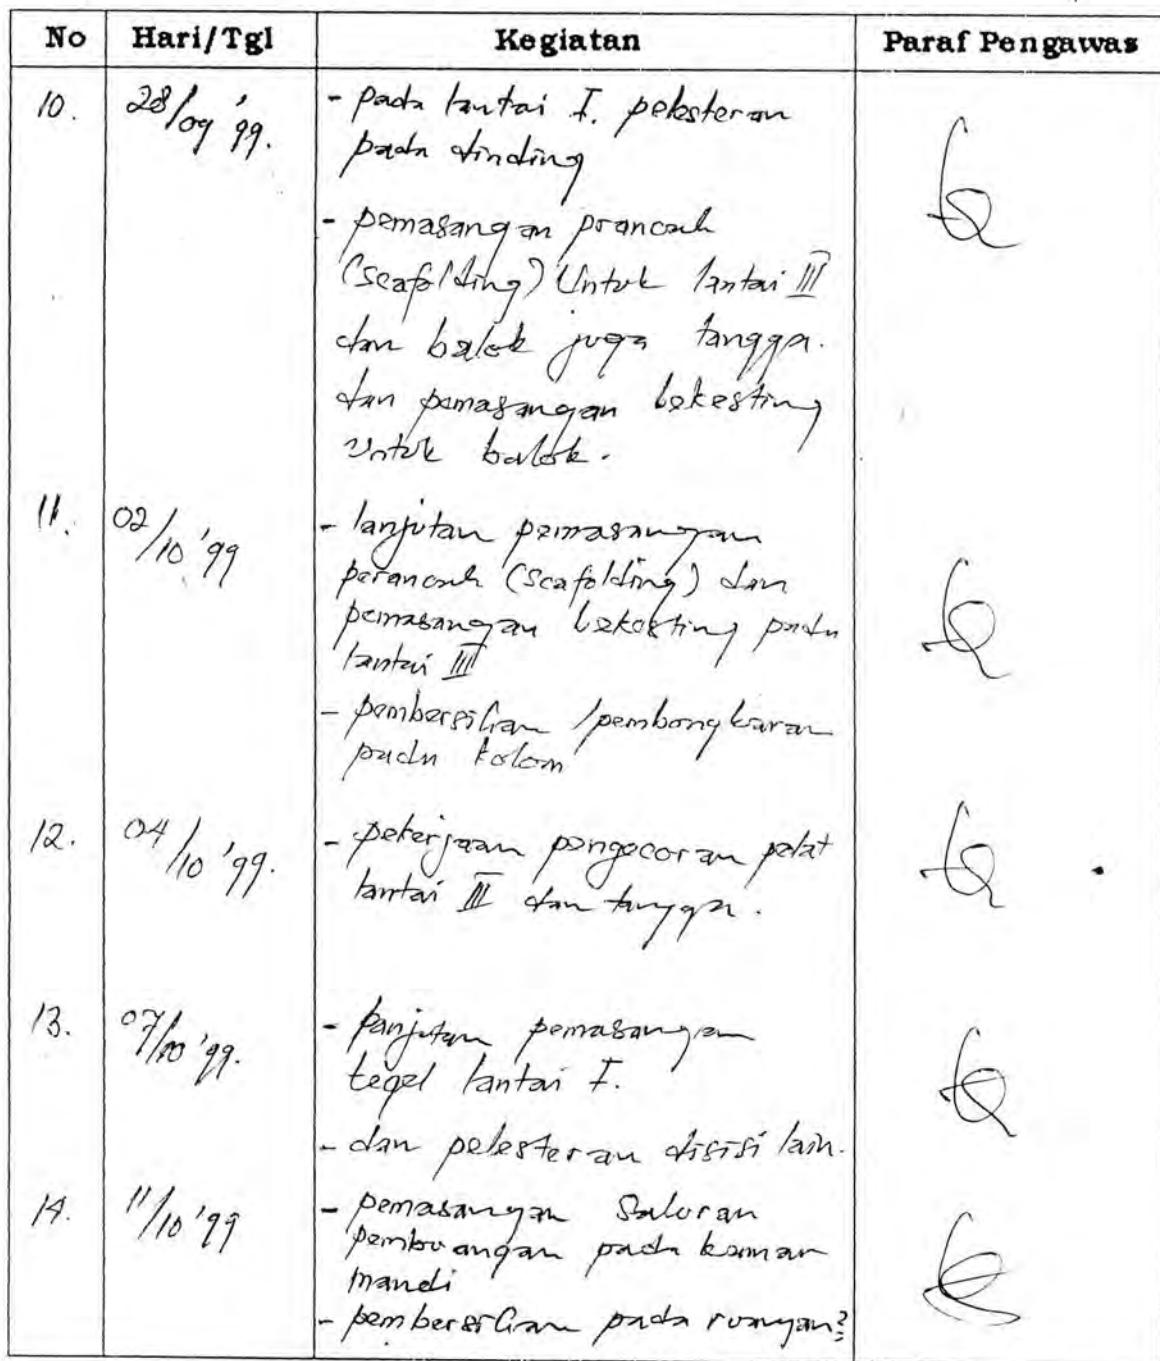 No Hari/Tgl Kegiatan Paraf Pengawas
10. 28/09 '99. - pada lantai I. pelesteran
pada dinding
- pemasangan prancah
(scafolding) Untuk lantai III
dan balok juga tangga.
dan pemasangan bekesting
untuk balok.
11. 02/10 '99 - lanjutan pemasangan
perancah (scafolding) dan
pemasangan bekesting pada
lantai III
- pembersihan / pembongkaran
pada kolom
12. 04/10 '99. - pekerjaan pengecoran pelat
lantai III dan tangga.
13. 07/10 '99. - lanjutan pemasangan
tegel lantai I.
- dan pelesteran disisi lain.
14. 11/10 '99 - pemasangan Saluran
pembuangan pada kamar
mandi
- pembersihan pada ruangan²